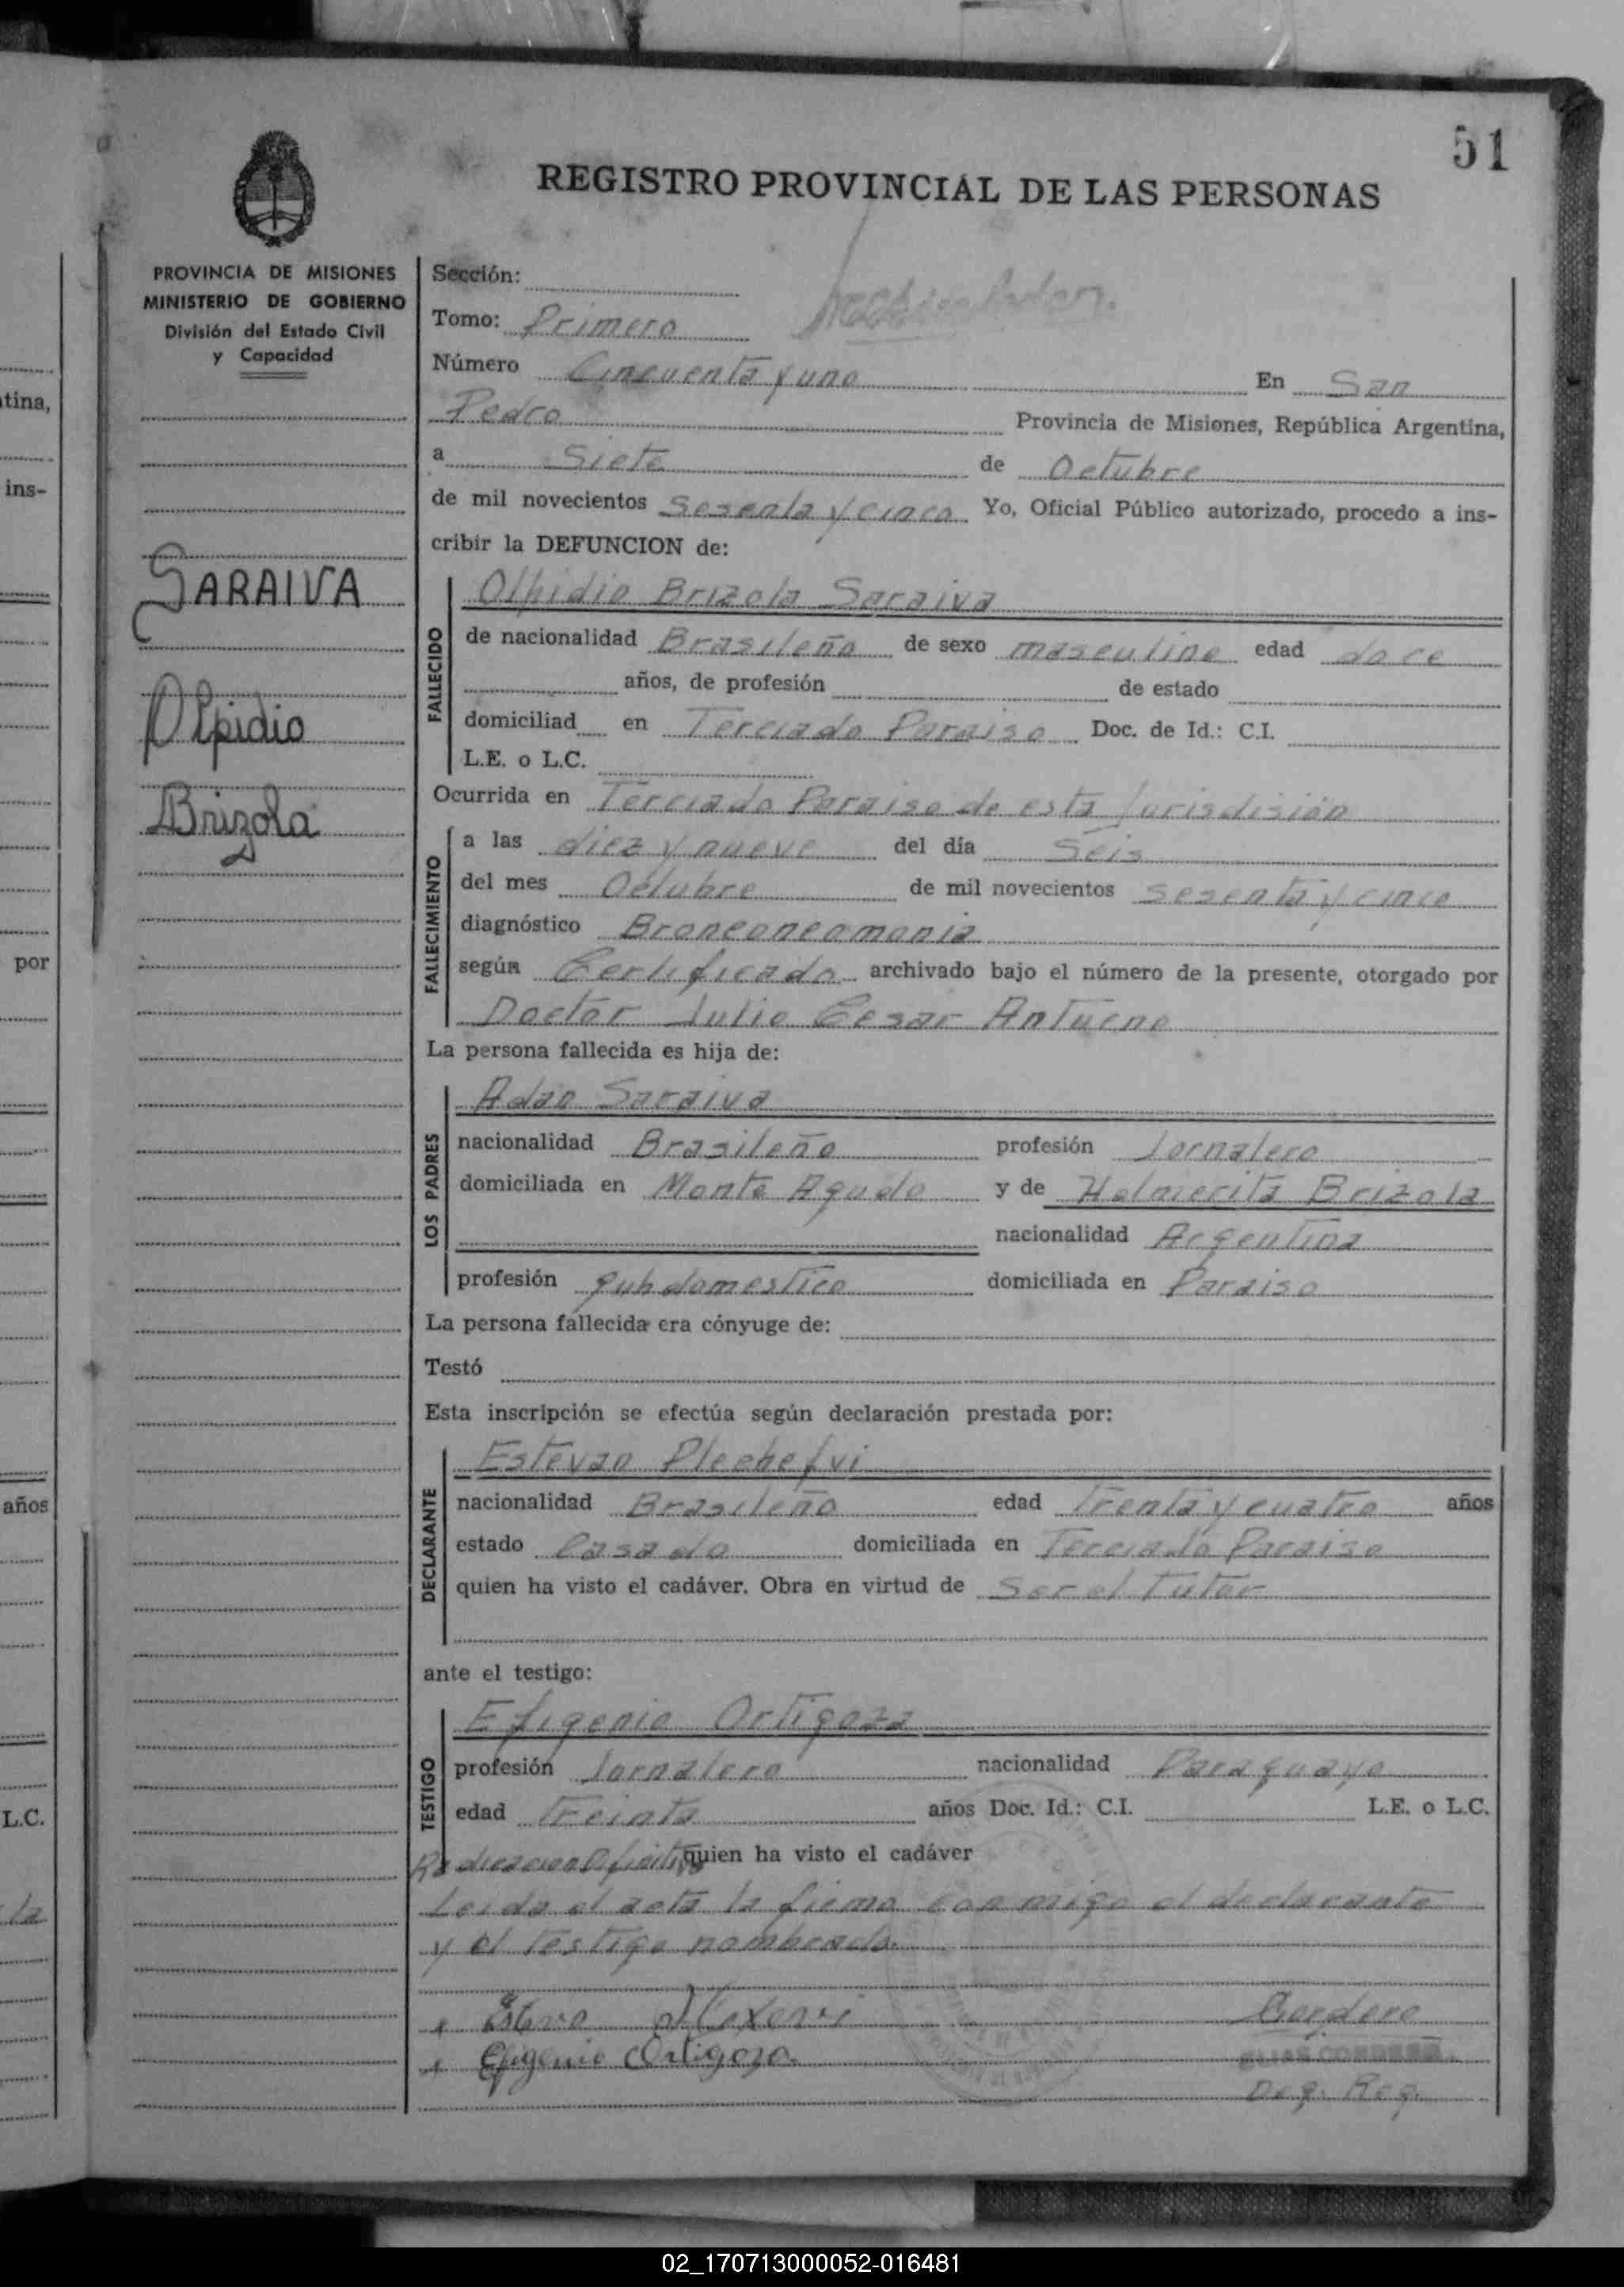 51
REGISTRO PROVINCIAL DE LAS PERSONAS
PROVINCIA DE MISIONES
MINISTERIO DE GOBIERNO
División del Estado Civil
y Capacidad
SARAIVA
Olpidio
Brizola
Sección:
Tomo: Primero
Número Cincuenta y uno En San
Pedro Provincia de Misiones, República Argentina,
a Siete de Octubre
de mil novecientos Sesenta y cinco Yo, Oficial Público autorizado, procedo a ins-
cribir la DEFUNCION de:
FALLECIDO
Olpidio Brizola Saraiva
de nacionalidad Brasileño de sexo masculino edad doce
años, de profesión de estado
domiciliad en Terciado Paraiso Doc. de Id.: C.I.
L.E. o L.C.
Ocurrida en Terciado Paraiso de esta Jurisdisión
FALLECIMIENTO
a las diez y nueve del día Seis
del mes Octubre de mil novecientos sesenta y cinco
diagnóstico Bronconeomonia
según Certificado archivado bajo el número de la presente, otorgado por
Doctor Julio Cesar
La persona fallecida es hija de:
LOS PADRES
Adán Saraiva
nacionalidad Brasileño profesión Jornalero
domiciliada en Monte Agudo y de Holmerita Brizola
nacionalidad Argentina
profesión quh domestico domiciliada en Paraiso
La persona fallecida era cónyuge de:
Testó
Esta inscripción se efectúa según declaración prestada por:
DECLARANTE
Estevan
nacionalidad Brasileño edad Trenta y cuatro años
estado Casado domiciliada en Terciado Paraiso
quien ha visto el cadáver. Obra en virtud de Ser el Tutor
ante el testigo:
TESTIGO
Efigenio Ortigoza
profesión Jornalero nacionalidad Paraguayo
edad Treinta años Doc. Id.: C.I. L.E. o L.C.
Radicacion Difinitiva quien ha visto el cadáver
Leida el acta la firma con migo el declarante
y el Testigo nombrado.
Efigenio Ortigoza Cordero
ELIAS CORDERO
Deg. Reg.
tina,
ins-
por
años
L.C.
la
02_170713000052-016481